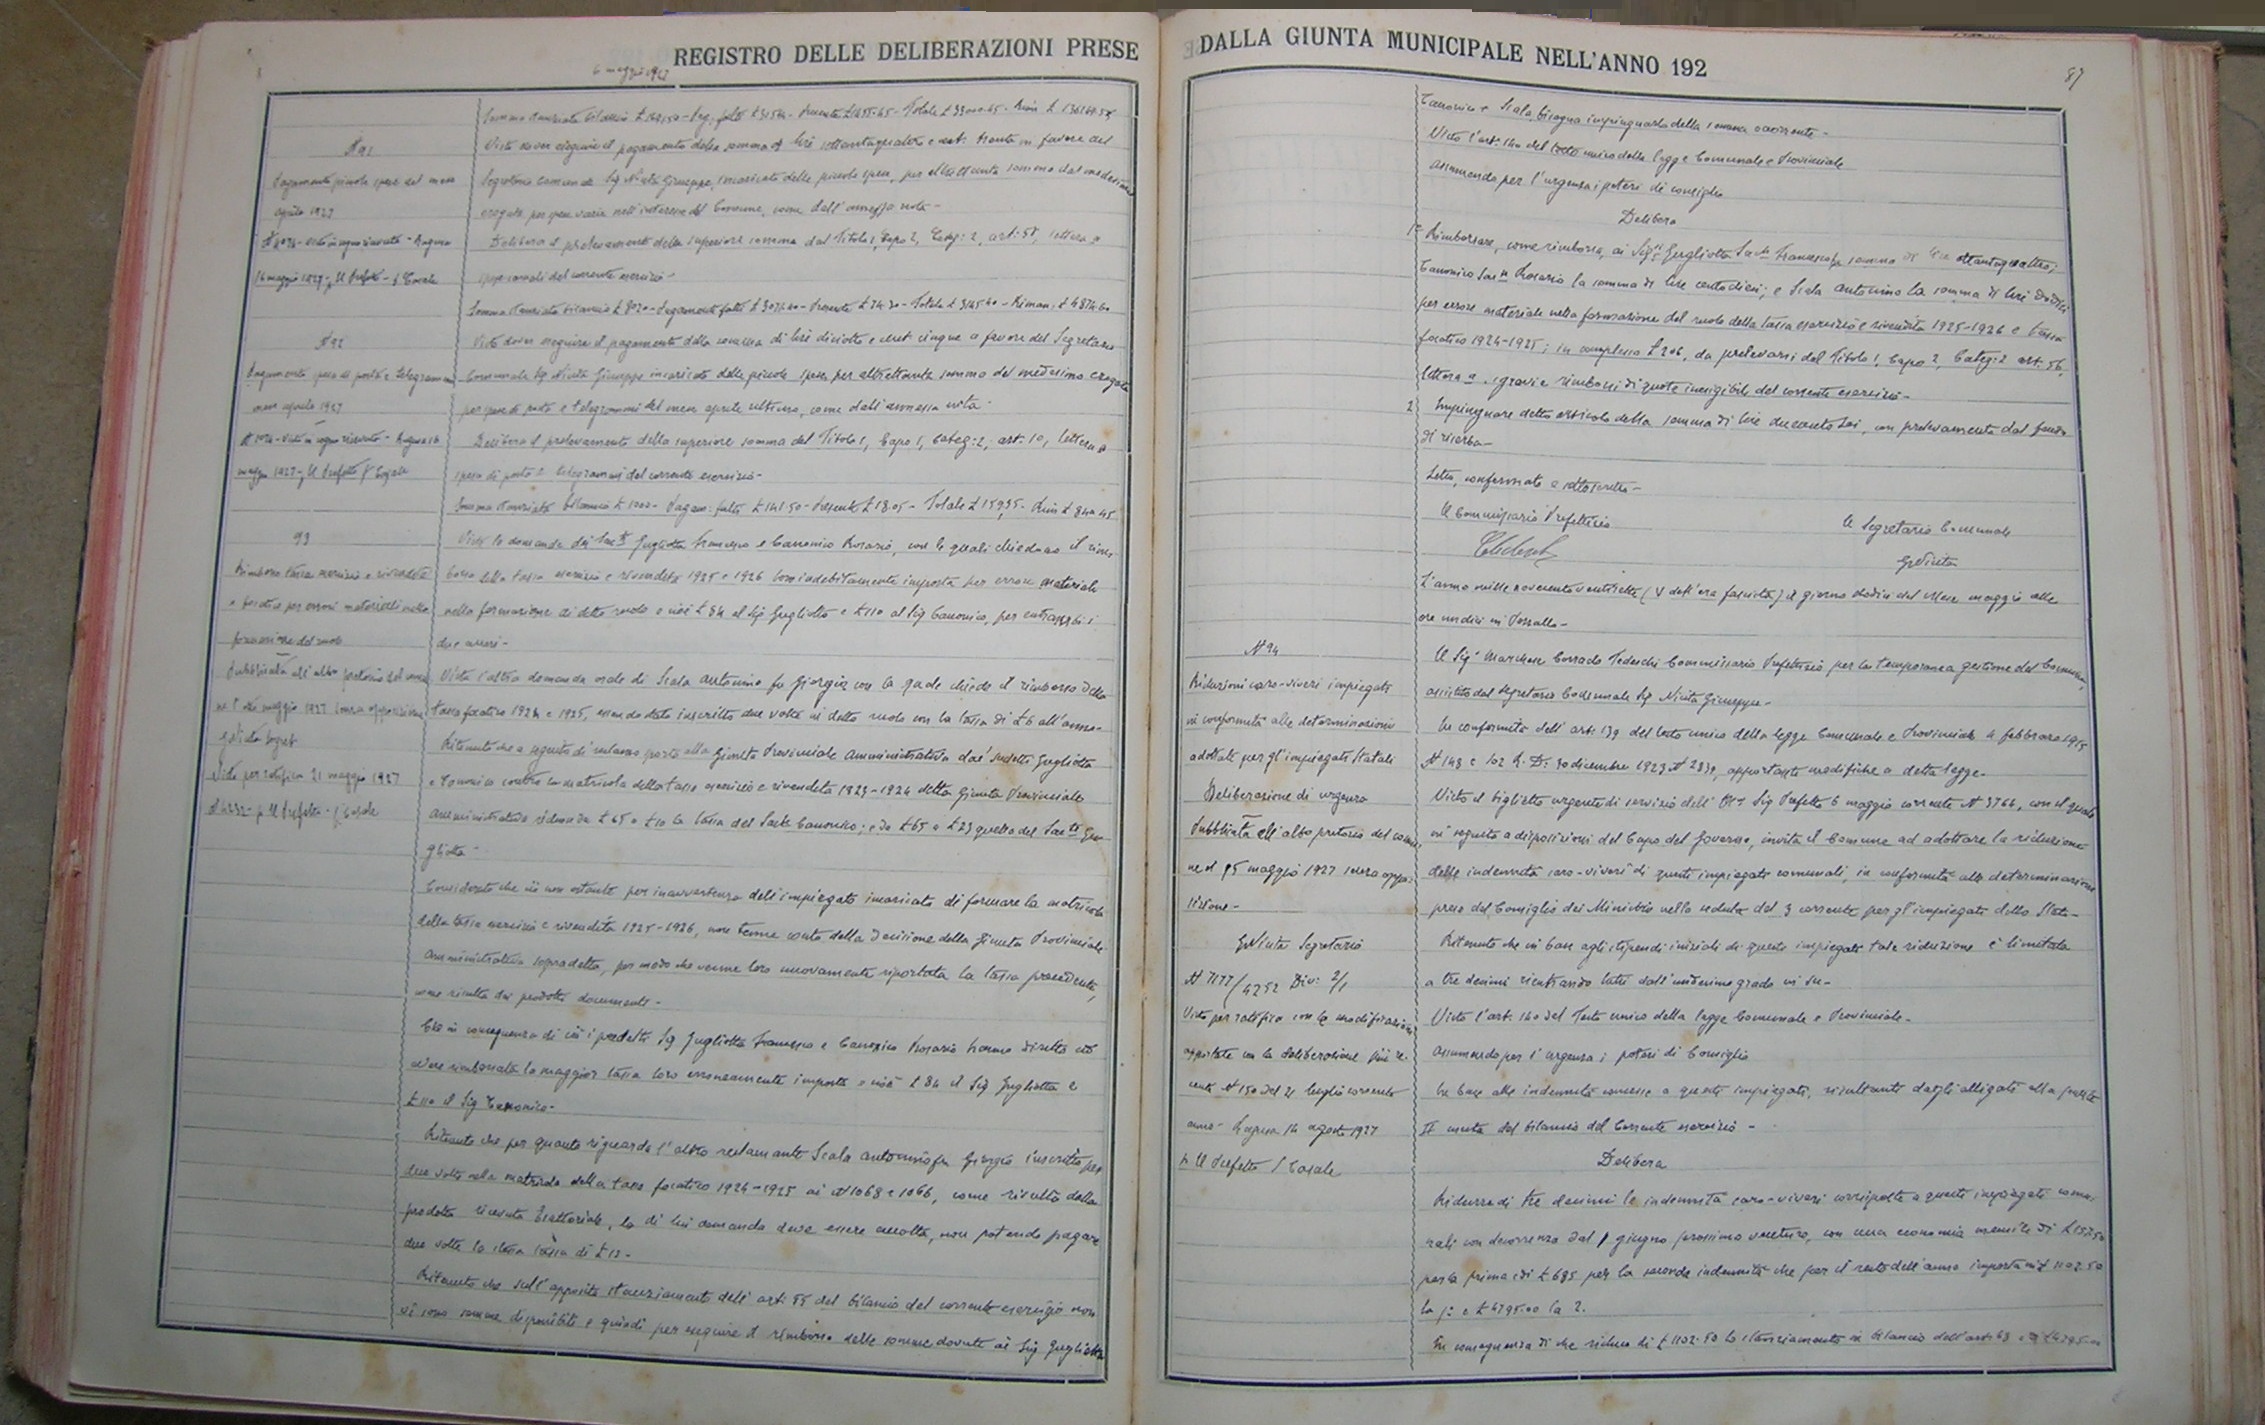 REGISTRO DELLE DELIBERAZIONI PRESE
6 maggio 1927
N 91
Pagamento piccole spese del mese
aprile 1927
16 maggio 1927 - p. Il Prefetto - f Casale
N 92
Pagamento spese di posta e telegrammi
mese aprile 1927
maggio 1927 - p. Il Prefetto f Casale
93
Rimborso tassa esercizio e rivendita
e focatico per errori materiali nella
formazione del ruolo
Pubblicata all'albo pretorio del comu
ne l' maggio 1927 senza opposizione
Visto per ratifica 21 maggio 1927
p. Il Prefetto - f Casale
Visto dover eseguire il pagamento della somma di lire settantaquattro e cent. trenta in favore del
Segretario Comunale Sig Nicita Giuseppe, incaricato delle piccole spese, per altrettanta somma dal medesimo
erogata per spese varie nell'interesse del Comune, come dall'annessa nota -
Delibera il prelevamento della superiore somma dal Titolo 1, Capo 2, Categ: 2, art: 58, lettera a
spese casuali del corrente esercizio -
Visto dover eseguire il pagamento della somma di lire diciotto e cent cinque a favore del Segretario
Comunale Sig Nicita Giuseppe incaricato delle piccole spese per altrettanta somma dal medesimo erogata
per spese di posta e telegrammi del mese aprile ultimo, come dall'annessa nota -
Delibera il prelevamento della superiore somma dal Titolo 1, Capo 1, Categ: 2, art: 10, lettera a
spese di posta e telegrammi del corrente esercizio -
Somma stanziata bilancio £ 1000 - Pagam: fatti £ 141.50 - Presente £ 18.05 - Totale £ 159,55 - Rim £ 840.45
Viste le domande dei Sac.ti Gugliotta Francesco e Canonico Rosario, con le quali chiedono il rim-
borso della tassa esercizio e rivendita 1925 e 1926 loro indebitamente imposta per errore materiale
nella formazione di detto ruolo e cioè £ 84 al Sig Gugliotta e £ 110 al Sig Canonico, per entrambi i
due anni -
Vista l'altra domanda orale di Scala Antonino fu Giorgio con la quale chiede il rimborso della
tassa focatico 1924 e 1925, essendo stato inscritto due volte in detto ruolo con la tassa di £ 6 all'anno -
Ritenuto che a seguito di reclamo sporto alla Giunta Provinciale Amministrativa dai sudetti Gugliotta
e Canonico contro la matricola della tassa esercizio e rivendita 1923-1924 detta Giunta Provinciale
Amministrativa riduceva da £ 65 a £ 10 la tassa del Sac.te Canonico; e da £ 65 a £ 23 quella del Sac.te Gu-
gliotta -
Considerato che ciò non ostante per inavvertenza dell'impiegato incaricato di formare la matricola
della tassa esercizio e rivendita 1925-1926, non tenne conto della decisione della Giunta Provinciale
Amministrativa sopradetta, per modo che venne loro nuovamente riportata la tassa precedente,
come risulta dai prodotti documenti -
Che in conseguenza di ciò i predetti Sig Gugliotta Francesco e Canonico Rosario hanno diritto ad
avere rimborsata la maggior tassa loro erroneamente imposta e cioè £ 84 il Sig Gugliotta e
£ 110 il Sig Canonico -
Ritenuto che per quanto riguarda l'altro reclamante Scala Antonino fu Giorgio inscritto per
due volte nella matricola della tassa focatico 1924-1925 ai N 1068 e 1066, come risulta dalla
prodotta ricevuta Esattoriale, la di lui domanda deve essere accolta, non potendo pagare
due volte la stessa tassa di £ 12 -
Ritenuto che sull'apposito stanziamento dell'art: 55 del bilancio del corrente esercizio non
vi sono somme disponibili e quindi per eseguire il rimborso delle somme dovute ai Sig Gugliotta
DALLA GIUNTA MUNICIPALE NELL'ANNO 192
87
Canonico e Scala bisogna impinguarlo della somma occorrente -
Visto l'art. 140 del testo unico della legge Comunale e Provinciale
Assumendo per l'urgenza i poteri di consiglio
Delibera
1° Rimborsare, come rimborsa, ai Sig.ri Gugliotta Sac.te Francesco la somma di lire ottantaquattro;
Canonico Sac.te Rosario la somma di lire centodieci; e Scala Antonino la somma di lire dodici
per errore materiale nella formazione del ruolo della tassa esercizio e rivendita 1925-1926 e tassa
focatico 1924-1925; in complesso £ 206, da prelevarsi dal Titolo 1, Capo 2, Categ: 2 art. 56,
lettera a, sgravi e rimborsi di quote inesigibili del corrente esercizio -
2 Impinguare detto articolo della somma di lire duecento sei, con prelevamento dal fondo
di riserva -
Letto, confermato e sottoscritto -
Il Commissario Prefettizio
Il Segretario Comunale
GNicita
L'anno millenovecentoventisette (V dell'era fascista) il giorno dodici del mese maggio alle
ore undici in
N 94
Riduzioni caro-viveri impiegati
in conformità alle determinazioni
adottate per gl'impiegati Statali
Deliberazione di urgenza
Pubblicata all'albo pretorio del comu
ne il 15 maggio 1927 senza oppo-
sizione -
GNicita Segretario
N 7177/4252 Div: 2/1
Visto per ratifica con le modificazioni
apportate con la deliberazione più re-
cente N 150 del 21 luglio corrente
anno - Ragusa 14 agosto 1927
p. Il Prefetto f Casale
Il Sig. Marchese Corrado Tedeschi Commissario Prefettizio per la temporanea gestione del Comune,
assistito dal Segretario Comunale Sig Nicita Giuseppe -
In conformità dell'art: 139 del testo unico della legge Comunale e Provinciale 4 febbraro 1915
N 148 e 102 R. D. 30 dicembre 1923 N 2839, apportante modifiche a detta legge -
Visto il biglietto urgente di servizio dell'Ill.mo Sig Prefetto 6 maggio corrente N 3766, con il quale
in seguito a disposizioni del Capo del Governo, invita il Comune ad adottare la riduzione
delle indennità caro-viveri di questi impiegati comunali, in conformità alle determinazioni
prese dal Consiglio dei Ministri nella seduta del 3 corrente per gl'impiegati dello Stato -
Ritenuto che in base agli stipendi iniziali di questi impiegati tale riduzione è limitata
a tre decimi rientrando tutti dall'undicesimo grado in su -
Visto l'art. 140 del Testo unico della legge Comunale e Provinciale -
Assumendo per l'urgenza i poteri di Consiglio
In base alle indennità concesse a questi impiegati, risultanti dagli alligati alla parte
II uscita del bilancio del corrente esercizio -
Delibera
Ridurre di tre decimi le indennità caro-viveri corrisposte a questi impiegati comu-
nali con decorrenza dal 1 giugno prossimo venturo, con una economia mensile di £ 157.50
per la prima e di £ 685 per la seconda indennità che per il resto dell'anno importa in £ 1102.50
la 1ª e £ 4795.00 la 2ª.
In conseguenza di che riduce di £ 1102.50 lo stanziamento in bilancio dell'art: 63 e di £ 4795.00